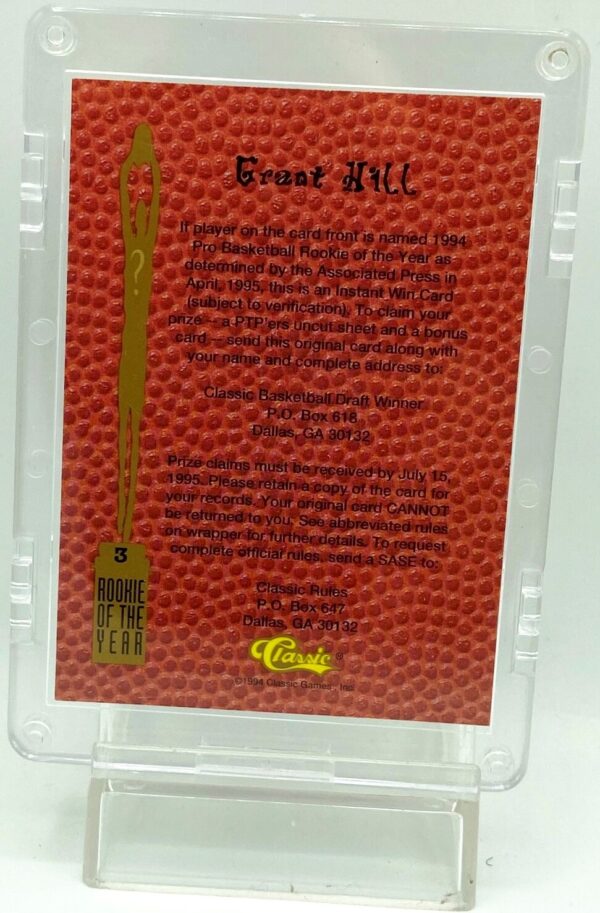 Grant Hill
If player on the card front is named 1994
Pro Basketball Rookie of the Year as
determined by the Associated Press in
April, 1995, this is an Instant Win Card
(subject to verification). To claim your
prize -- a PTP'ers uncut sheet and a bonus
card -- send this original card along with
your name and complete address to:
Classic Basketball Draft Winner
P.O. Box 618
Dallas, GA 30132
Prize claims must be received by July 15,
1995. Please retain a copy of the card for
your records. Your original card CANNOT
be returned to you. See abbreviated rules
on wrapper for further details. To request
complete official rules, send a SASE to:
Classic Rules
P.O. Box 647
Dallas, GA 30132
Classic®
©1994 Classic Games, Inc.
?
3
ROOKIE
OF THE
YEAR